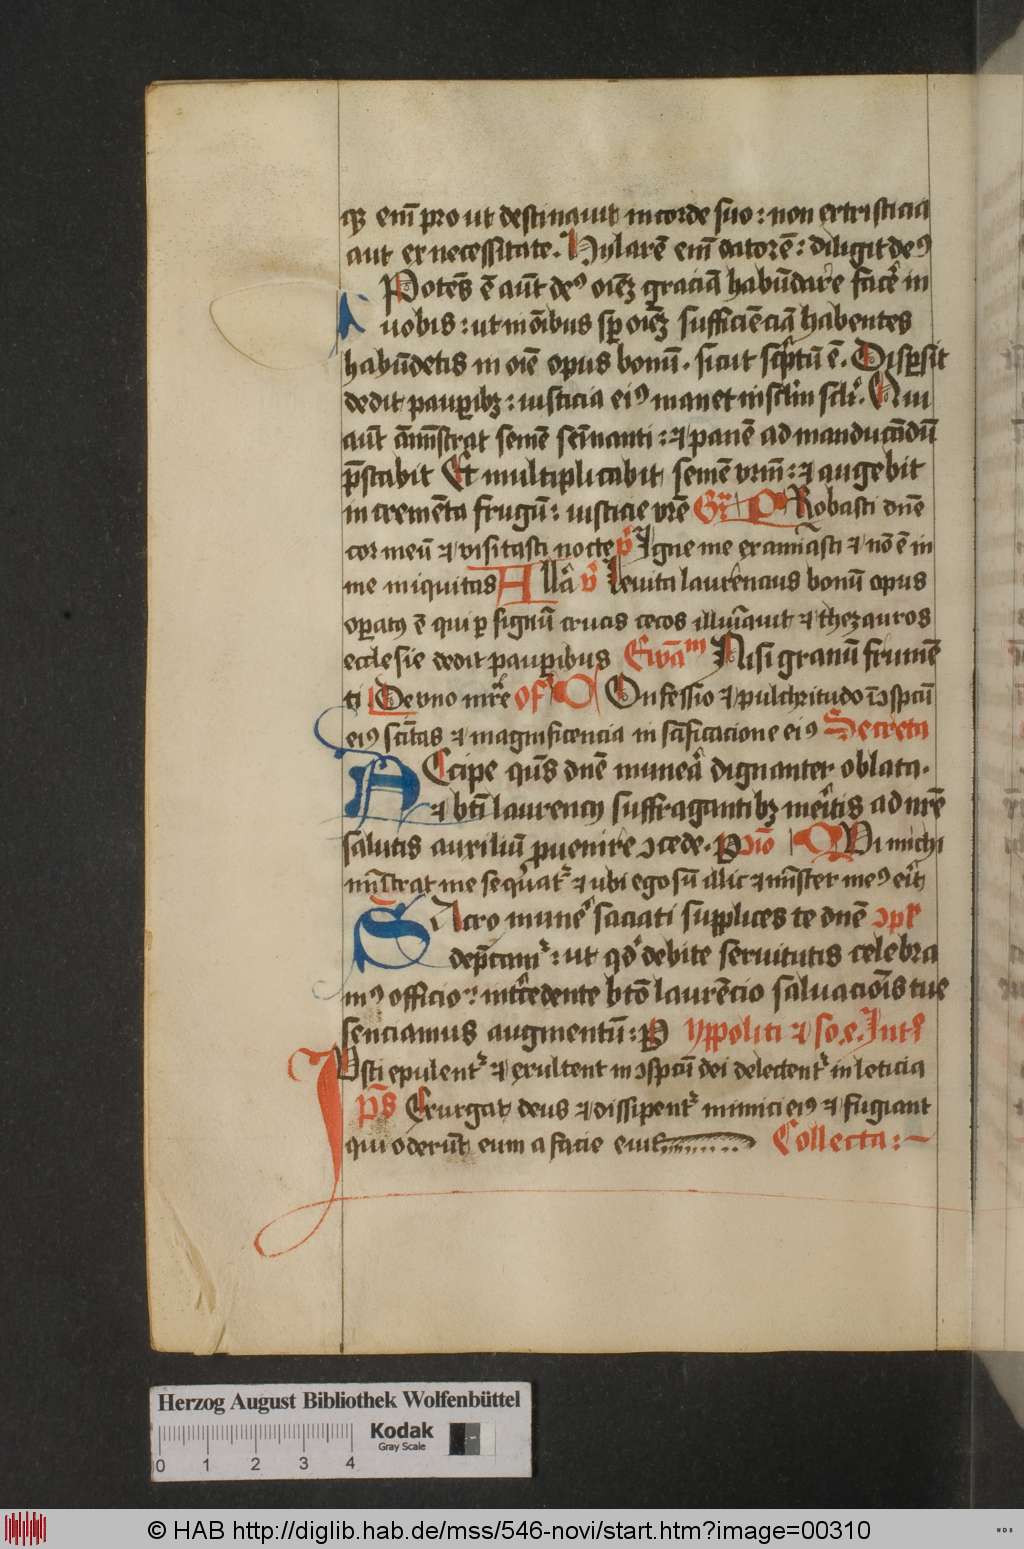 qȝ em̄ pro ut destinauit in corde suo : non ex tristicia
aut ex necessitate . Hylarē em̄ datorē : diligit deꝰ
Potēs ē aūt deꝰ oīeȝ graciā habūdare facē in
uobis : ut in oībus sp̱ oīeȝ sufficiēciā habentes
habūdetis in oīe opus bonū . sicut sc̄ptū ē . Disp̱sit
dedit paup̱ibȝ : iusticia eiꝰ manet in sclm̄ scli . Qui
aūt āmīstrat semē semīnanti : ⁊ panē ad manducādū
p̄stabit Et multiplicabit semē vrm̄ : ⁊ augebit
incremēta frugū : iusticie vrē Gr̄ PRobasti dn̄e
cor meū ⁊ visitasti nocte v̄ Igne me examīasti ⁊ nō ē in
me iniquitas Allā v̄ Leuita laurencius bonū opus
op̱atꝰ ē qui p̱ signū crucis cecos illuīauit ⁊ thezauros
ecclesie dedit paup̱ibus Ewāᵐ Nisi granū frumē
ti De vno mr̄e off COnfessio ⁊ pulchritudo ī ꝯspcū
eiꝰ scītas ⁊ magnificencia in scīficacione eiꝰ Secreta
ACcipe qs̄ dn̄e munēa dignanter oblata .
⁊ btī laurencij suffragantibȝ mēitis ad nr̄e
salutis auxiliū prouenire ꝯcede . P Cōio QVi michi
mīstrat me sequatr̄ ⁊ ubi ego sū illic ⁊ mīster meꝰ erit
SAcro munē saciati supplices te dn̄e ꝯpl̄
dep̄camr̄ : ut qd̄ debite seruitutis celebra
mꝰ officio : intcedente btō laurēcio saluacōis tue
senciamus augmentū : P yppoliti ⁊ so . e . Int̄
IVsti epulentr̄ ⁊ exultent in ꝯspcū dei delectentr̄ in leticia
Ps̄ Exurgat deus ⁊ dissipentr̄ inimici eiꝰ ⁊ fugiant
qui oderūt eum a facie eius Collecta :
Herzog August Bibliothek Wolfenbüttel
Kodak
Gray Scale
0 1 2 3 4
© HAB http://diglib.hab.de/mss/546-novi/start.htm?image=00310